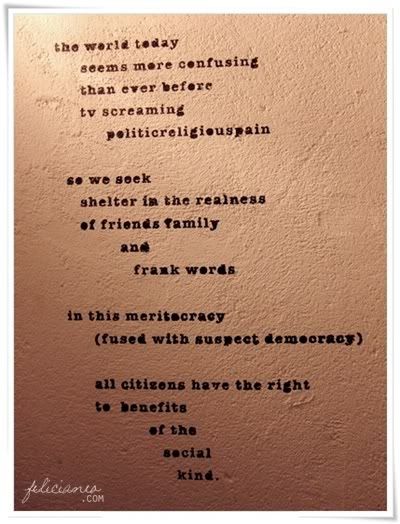 the world today
seems more confusing
than ever before
tv screaming
politicreligiouspain
so we seek
shelter in the realness
of friends family
and
frank words
in this meritocracy
(fused with suspect democracy)
all citizens have the right
to benefits
of the
social
kind.
felicianea
.COM